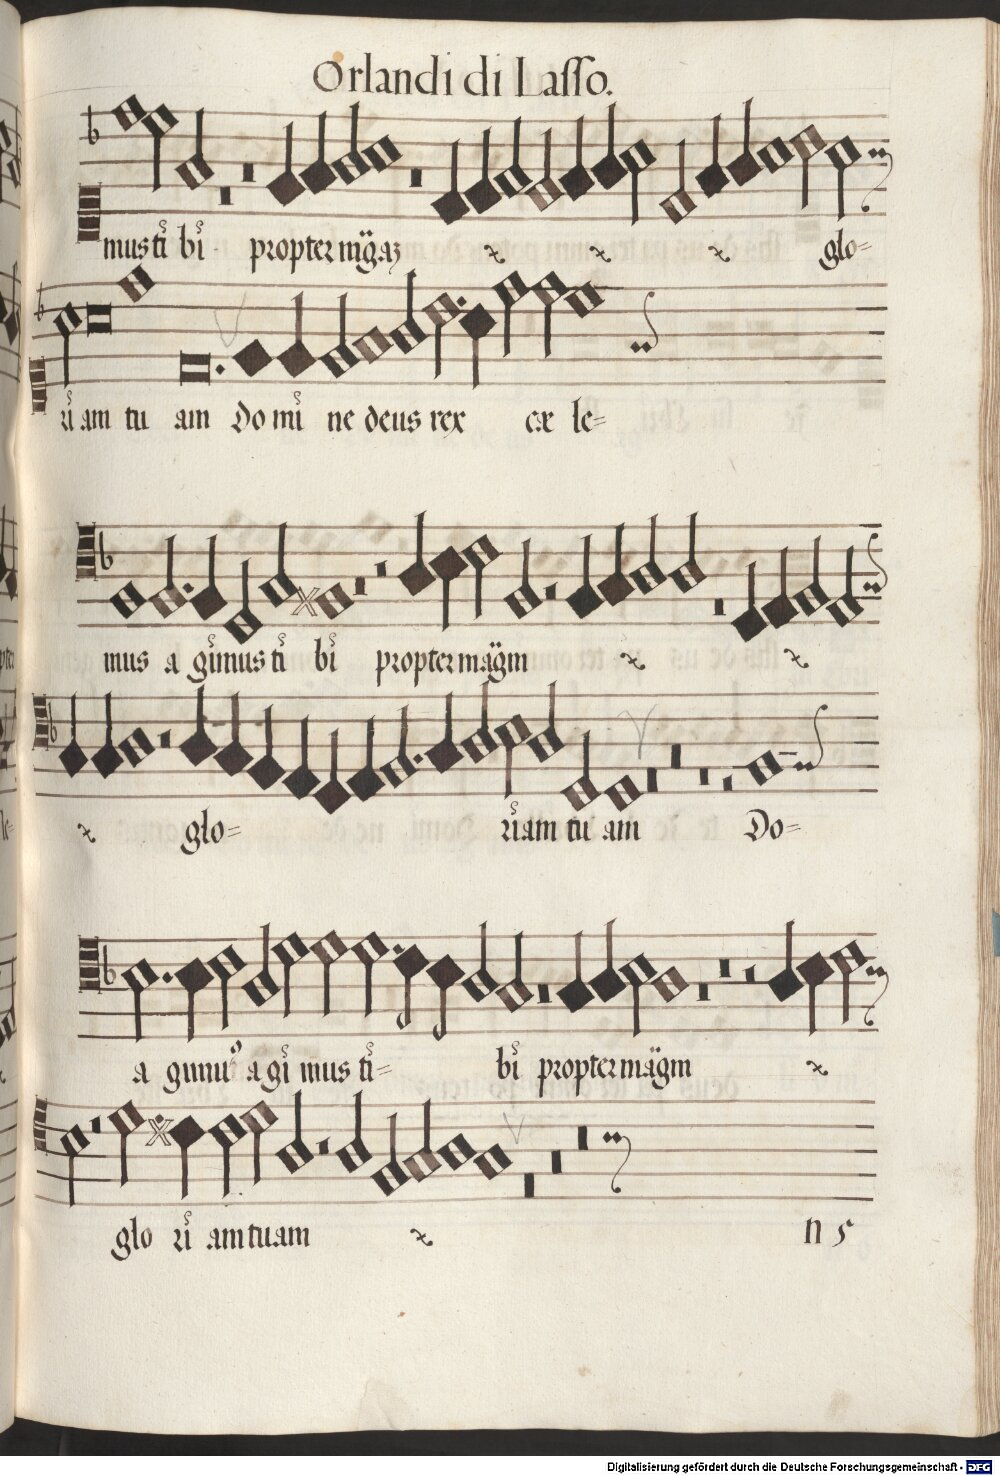 Orlandi di Lasso.
mus ti bi propter mãgaz ɀ ɀ ɀ glo=
ri am tu am Do mi ne deus rex cæ le=
mus a gimus ti bi propter mãgm ɀ ɀ
ɀ glo= riam tu am Do=
a gimus a gi mus ti= bi propter mãgm ɀ
glo ri am tuam ɀ n 5
Digitalisierung gefördert durch die Deutsche Forschungsgemeinschaft - DFG